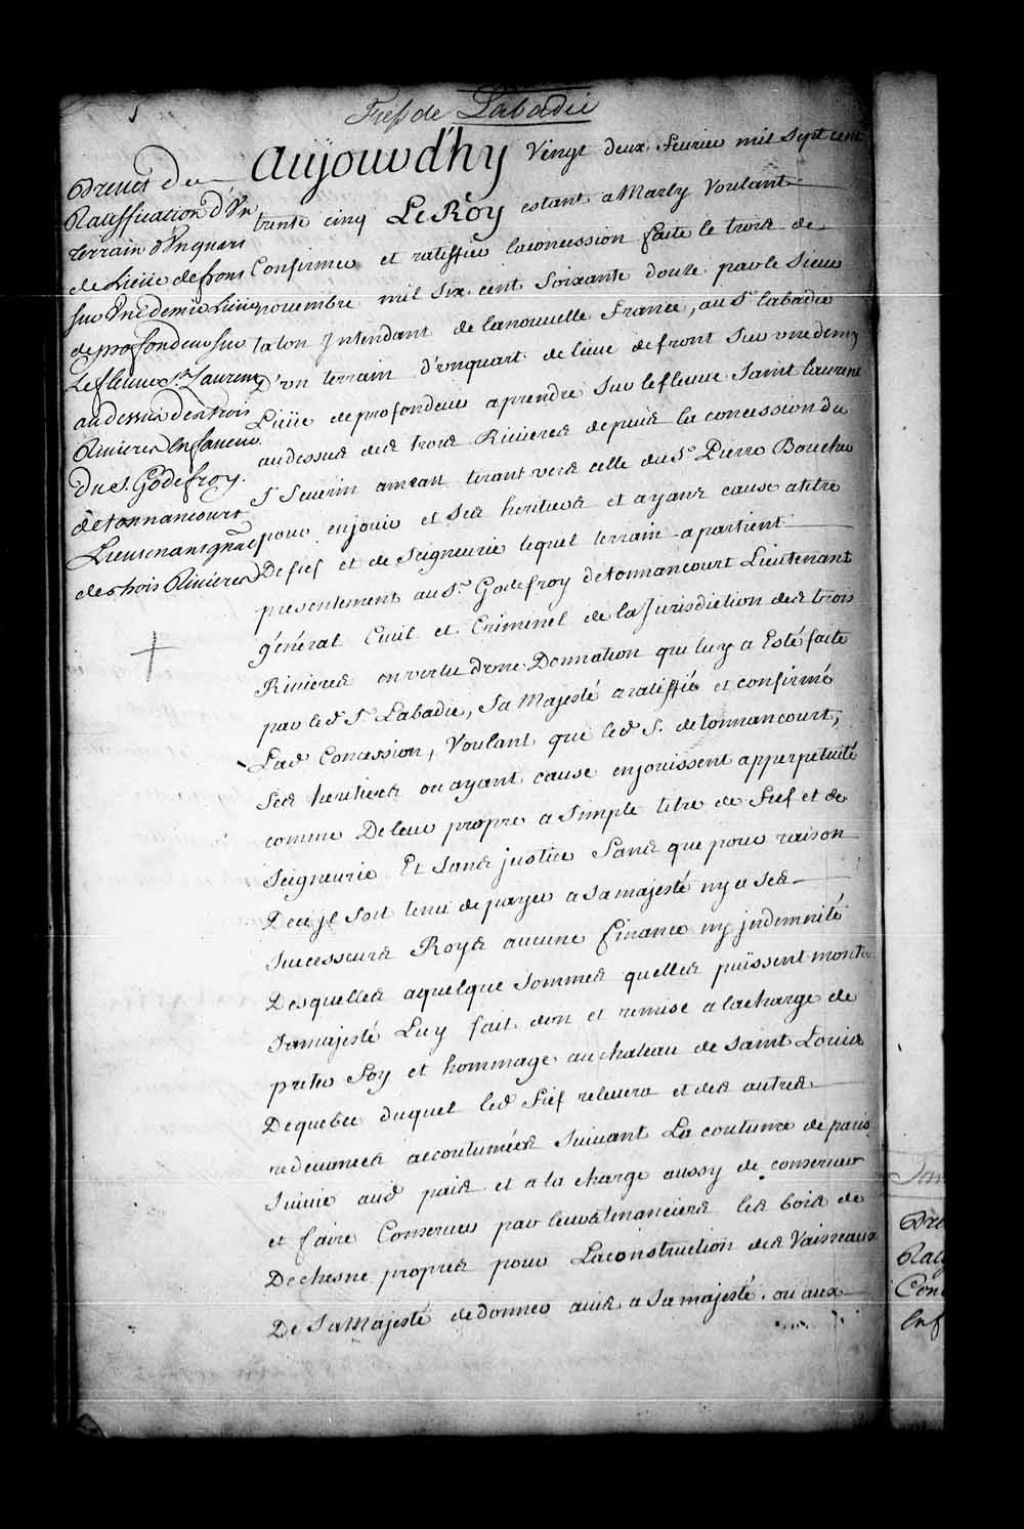 5
Fief de Labadie
Brevet de
Ratiffication d'Un
terrain d'Un quart
de Lieüe de front
sur Une demie Lieüe
de profondeur sur
Le fleuve St. Laurent
au dessus des trois
Rivieres En faveur
du S. Godefroy
de tonnancourt
Lieutenant gñal
des trois Rivieres
Aujourd'hÿ Vingt deux fevrier mil sept cent
trente cinq Le Roy estant a Marly Voulant
Confirmer et ratiffier la concession faite le trois de
novembre mil six cent soixante douze par le sieur
talon Intendant de la nouvelle France, au Sr. labadie
D'un terrain d'un quart de lieue de front sur une demy
Lieüe de profondeur a prendre sur le fleuve saint laurent
au dessus des trois Rivieres depuis la concession du
Sr. Severin amean tirant vers celle du Sr. Pierre Boucher
pour en jouir et ses heritiers et ayans cause a titre
De fief et de seigneurie lequel terrain apartient
presentement au Sr. Godefroy de tonnancourt Lieutenant
général Civil et Criminel de la Jurisdiction des trois
Rivieres en vertu d'une Donnation qui luy a Esté faite
par led. Sr. Labadie, Sa Majesté a ratiffié et confirmé
Lad Concession, Voulant que led S. de tonnancourt,
ses heritiers ou ayant cause en jouissent apperpetuité
comme De leur propre a simple titre de fief et de
seigneurie Et sans justice sans que pour raison
De ce jl soit tenu de payer a sa majesté ny a ses
successeurs Roys aucune finance ny jndemnité
Desquelles a quelque sommes quelles puissent monter
sa majesté Luy fait don et remise a la charge de
porter foy et hommage au chateau de saint Louis
De quebec duquel led fief relevera et des autres
redevances accoutumées suivant La coutume de paris
suivie aud païs et a la charge aussy de conserver
et faire Conserver par leurs tenanciers les bois de
De chesne propres pour La construction des Vaisseaux
De Sa Majesté de donner avis a Sa majesté ou aux